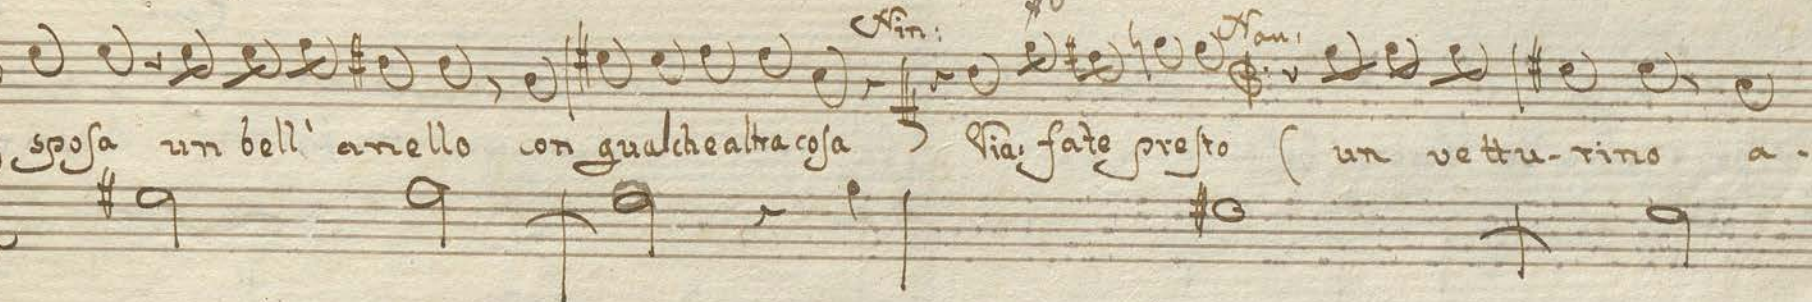 Nin: Nan:
sposa un bell' anello con qualche altra cosa ) Via: fate presto ( un vettu-rino a-